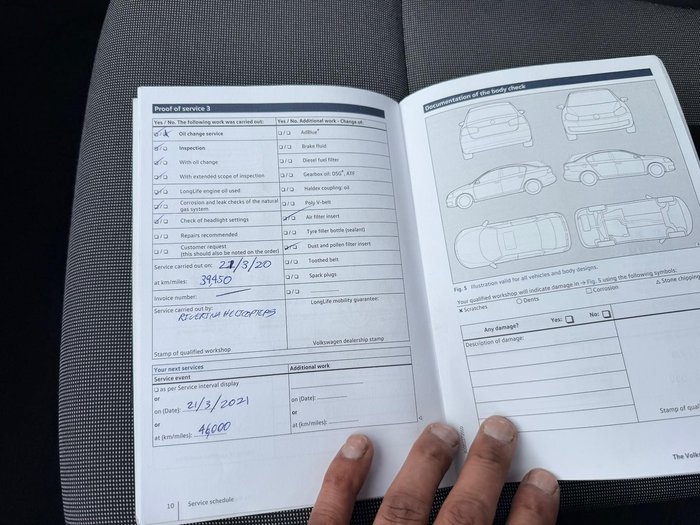 Proof of service 3
Yes / No. The following work was carried out:
Oil change service
Inspection
With oil change
With extended scope of inspection
LongLife engine oil used
Corrosion and leak checks of the natural
gas system
Check of headlight settings
Repairs recommended
Customer request
(this should also be noted on the order)
Service carried out on: 21/3/20
at km/miles: 39450
Invoice number:
Service carried out by:
RIVERINA HELICOPTERS
Stamp of qualified workshop
Yes / No. Additional work - Change of:
AdBlue®
Brake fluid
Diesel fuel filter
Gearbox oil: DSG®, ATF
Haldex coupling: oil
Poly V-belt
Air filter insert
Tyre filler bottle (sealant)
Dust and pollen filter insert
Toothed belt
Spark plugs
LongLife mobility guarantee:
Volkswagen dealership stamp
Your next services
Service event
as per Service interval display
or
on (Date): 21/3/2021
or
at (km/miles): 46000
Additional work
on (Date):
or
at (km/miles):
10 Service schedule
Documentation of the body check
Fig. 5 Illustration valid for all vehicles and body designs.
Your qualified workshop will indicate damage in → Fig. 5 using the following symbols:
x Scratches O Dents □ Corrosion △ Stone chipping
Any damage? Yes: No:
Description of damage:
Stamp of qual
The Volks